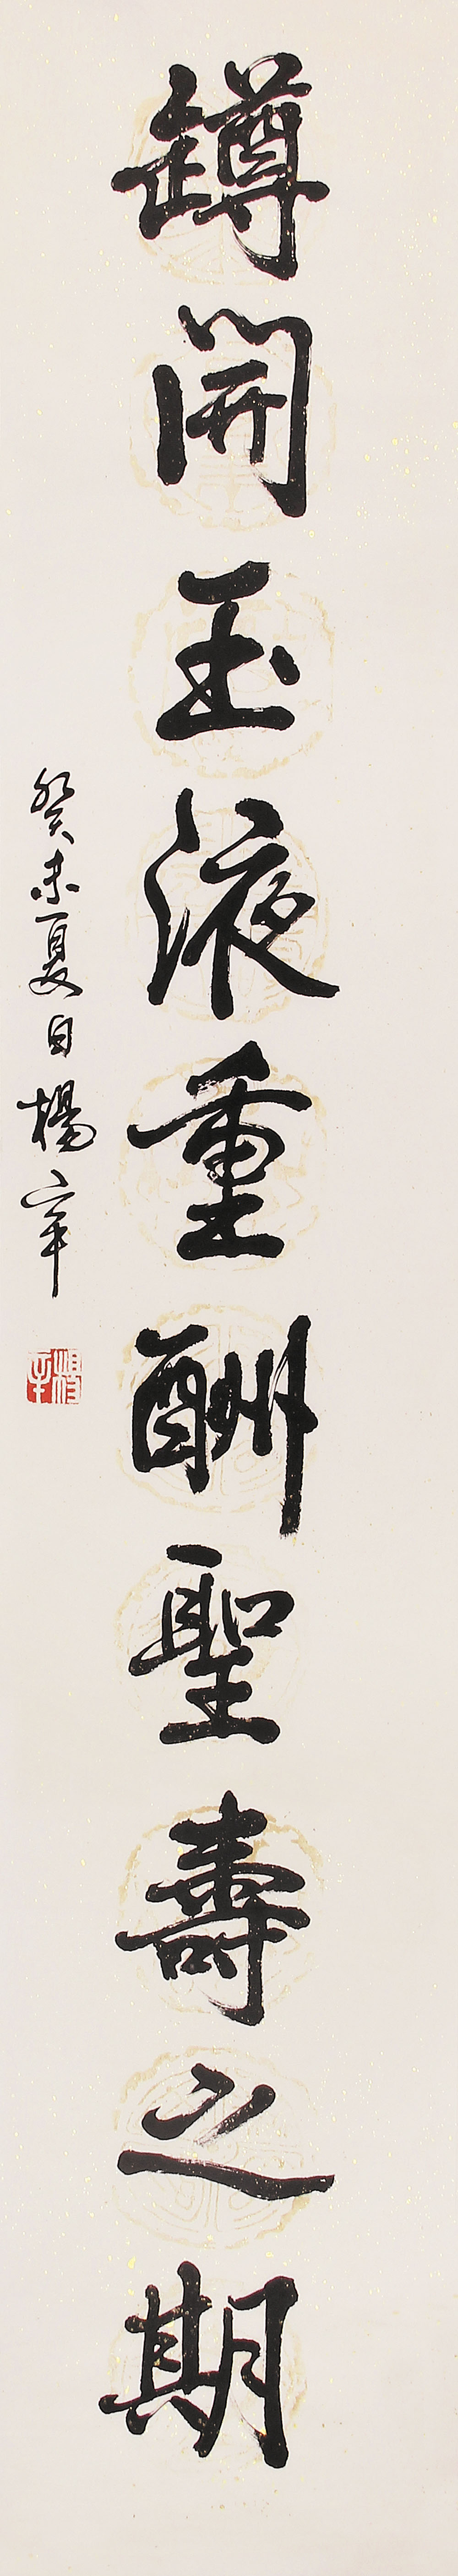 罇開玉液重酬聖壽之期
癸未夏日楊辛
楊辛